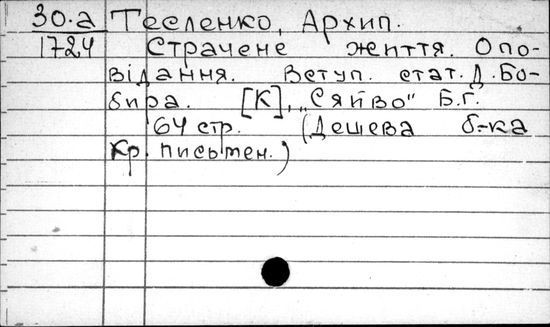 30.а Тесленко, Архип.
1724 Страчене життя. Опо-
відання. Вступ. стат. Д. Бо-
бира. [К], „Сяйво" Б.г.
64 стр. (Дешева б-ка
кр. письмен.)